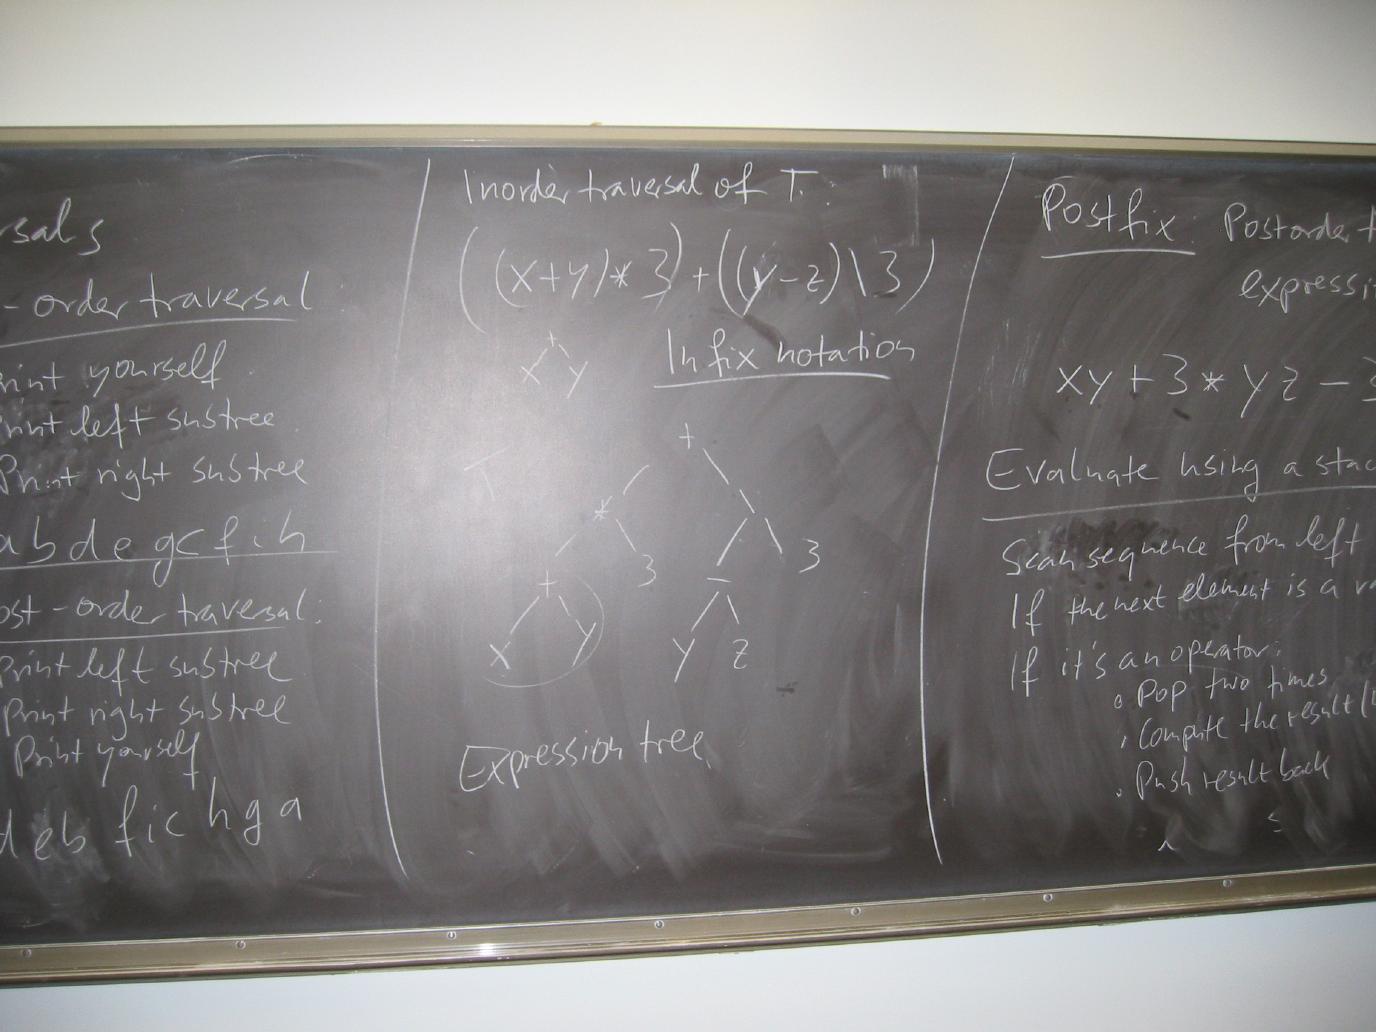 rsals
- order traversal
rint yourself
rint left subtree
Print right subtree
abdegcfih
ost-order traversal:
Print left subtree
Print right subtree
Print yourself
debfichga
Inorder traversal of T:
((x+y)*3)+((y-z)\3)
+
x y
Infix notation
T
+
* \
+ 3 - 3
x y y z
Expression tree
Postfix: Postorder t
expressi
xy+3*yz-3
Evaluate using a stac
Scan sequence from left
If the next element is a va
If it's an operator:
• Pop two times
• Compute the result
• Push result back